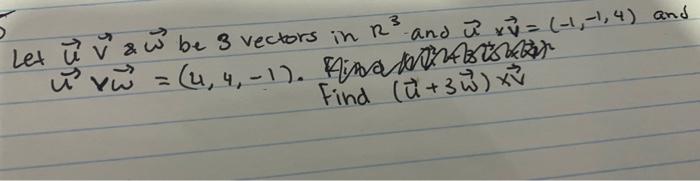 Let u⃗ v⃗ & w⃗ be 3 vectors in R³ and u⃗ x v⃗ = (-1,-1,4) and
u⃗ v w⃗ = (4, 4, -1).
Find (u⃗ + 3w⃗) x v⃗